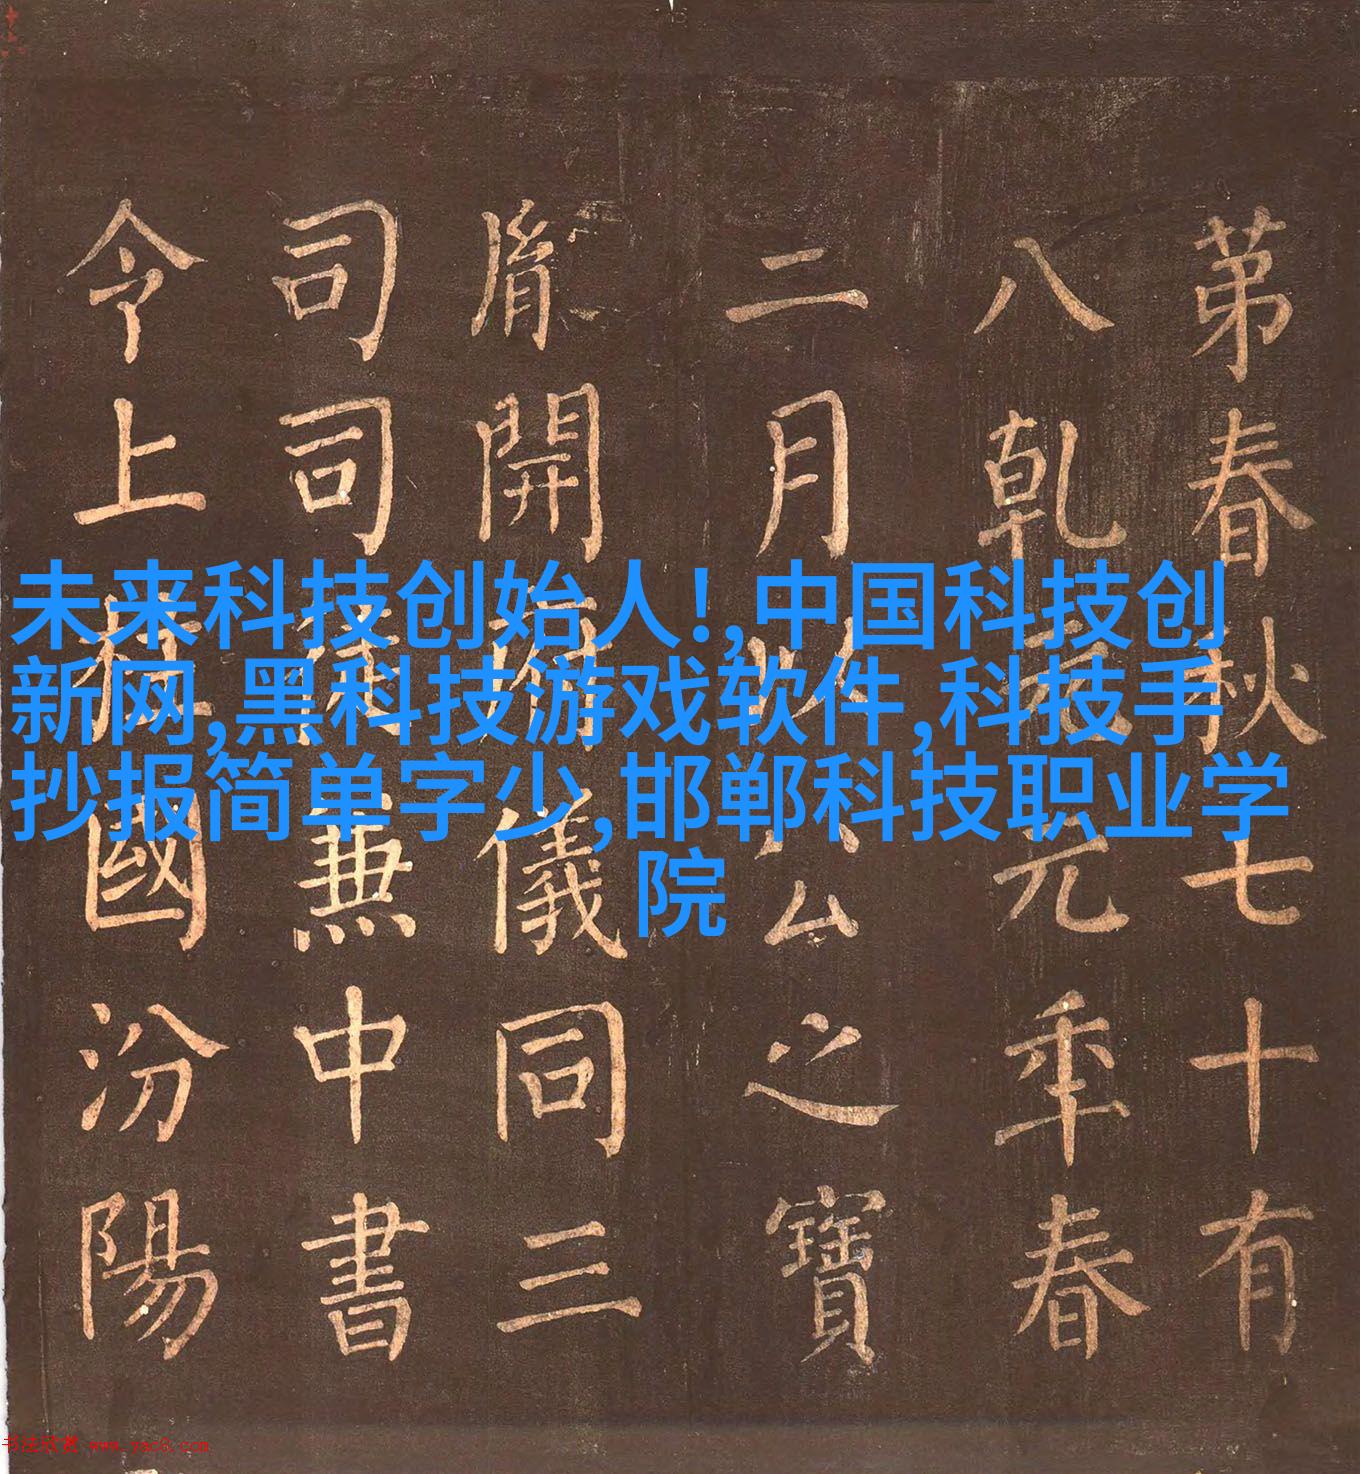 未来科技创始人!,中国科技创
新网,黑科技游戏软件,科技手
抄报简单字少,邯郸科技职业学
院
苐春秋七十有
八乹元年春
二月以公之寶
胤開府儀同三
司司徒兼中書
令上國汾陽
书法欣赏 www.yac8.com